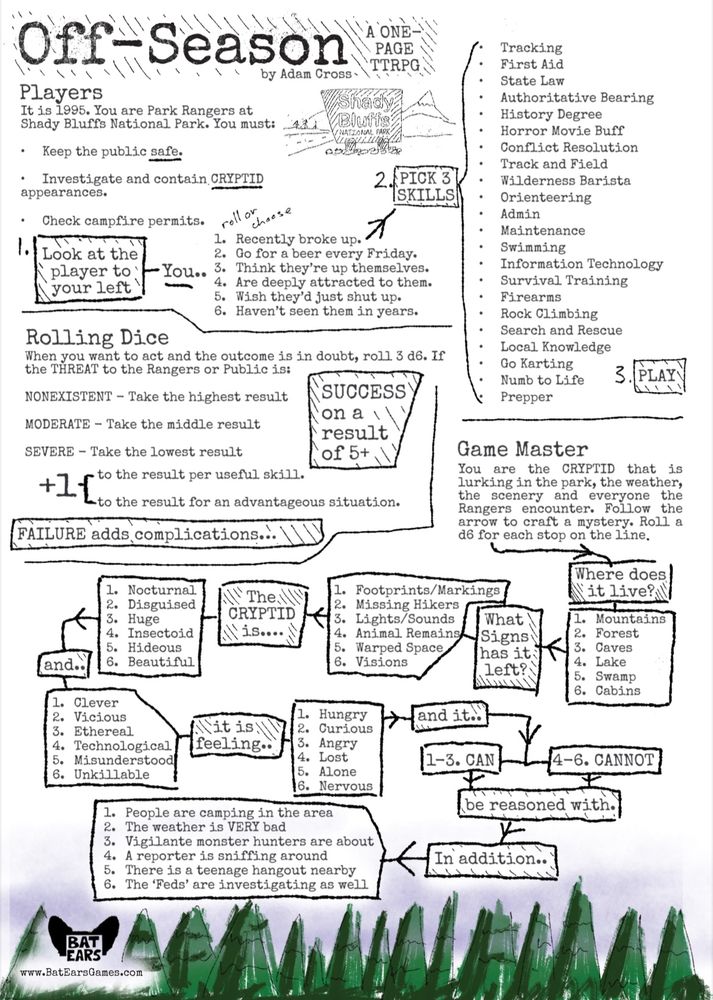 Off-Season
by Adam Cross
A ONE-
PAGE
TTRPG
Players
It is 1995. You are Park Rangers at
Shady Bluffs National Park. You must:
· Keep the public safe.
· Investigate and contain CRYPTID
appearances.
· Check campfire permits.
Shady
Bluffs
NATIONAL PARK
1.
Look at the
player to
your left
You..
roll or
choose
1. Recently broke up.
2. Go for a beer every Friday.
3. Think they're up themselves.
4. Are deeply attracted to them.
5. Wish they'd just shut up.
6. Haven't seen them in years.
2. PICK 3
SKILLS
· Tracking
· First Aid
· State Law
· Authoritative Bearing
· History Degree
· Horror Movie Buff
· Conflict Resolution
· Track and Field
· Wilderness Barista
· Orienteering
· Admin
· Maintenance
· Swimming
· Information Technology
· Survival Training
· Firearms
· Rock Climbing
· Search and Rescue
· Local Knowledge
· Go Karting
· Numb to Life
· Prepper
3. PLAY
Rolling Dice
When you want to act and the outcome is in doubt, roll 3 d6. If
the THREAT to the Rangers or Public is:
NONEXISTENT - Take the highest result
MODERATE - Take the middle result
SEVERE - Take the lowest result
SUCCESS
on a
result
of 5+
+1
to the result per useful skill.
to the result for an advantageous situation.
FAILURE adds complications...
Game Master
You are the CRYPTID that is
lurking in the park, the weather,
the scenery and everyone the
Rangers encounter. Follow the
arrow to craft a mystery. Roll a
d6 for each stop on the line.
Where does
it live?
1. Mountains
2. Forest
3. Caves
4. Lake
5. Swamp
6. Cabins
What
Signs
has it
left?
1. Footprints/Markings
2. Missing Hikers
3. Lights/Sounds
4. Animal Remains
5. Warped Space
6. Visions
The
CRYPTID
is....
1. Nocturnal
2. Disguised
3. Huge
4. Insectoid
5. Hideous
6. Beautiful
and..
1. Clever
2. Vicious
3. Ethereal
4. Technological
5. Misunderstood
6. Unkillable
it is
feeling..
1. Hungry
2. Curious
3. Angry
4. Lost
5. Alone
6. Nervous
and it..
1-3. CAN
4-6. CANNOT
be reasoned with.
In addition..
1. People are camping in the area
2. The weather is VERY bad
3. Vigilante monster hunters are about
4. A reporter is sniffing around
5. There is a teenage hangout nearby
6. The 'Feds' are investigating as well
BAT
EARS
www.BatEarsGames.com